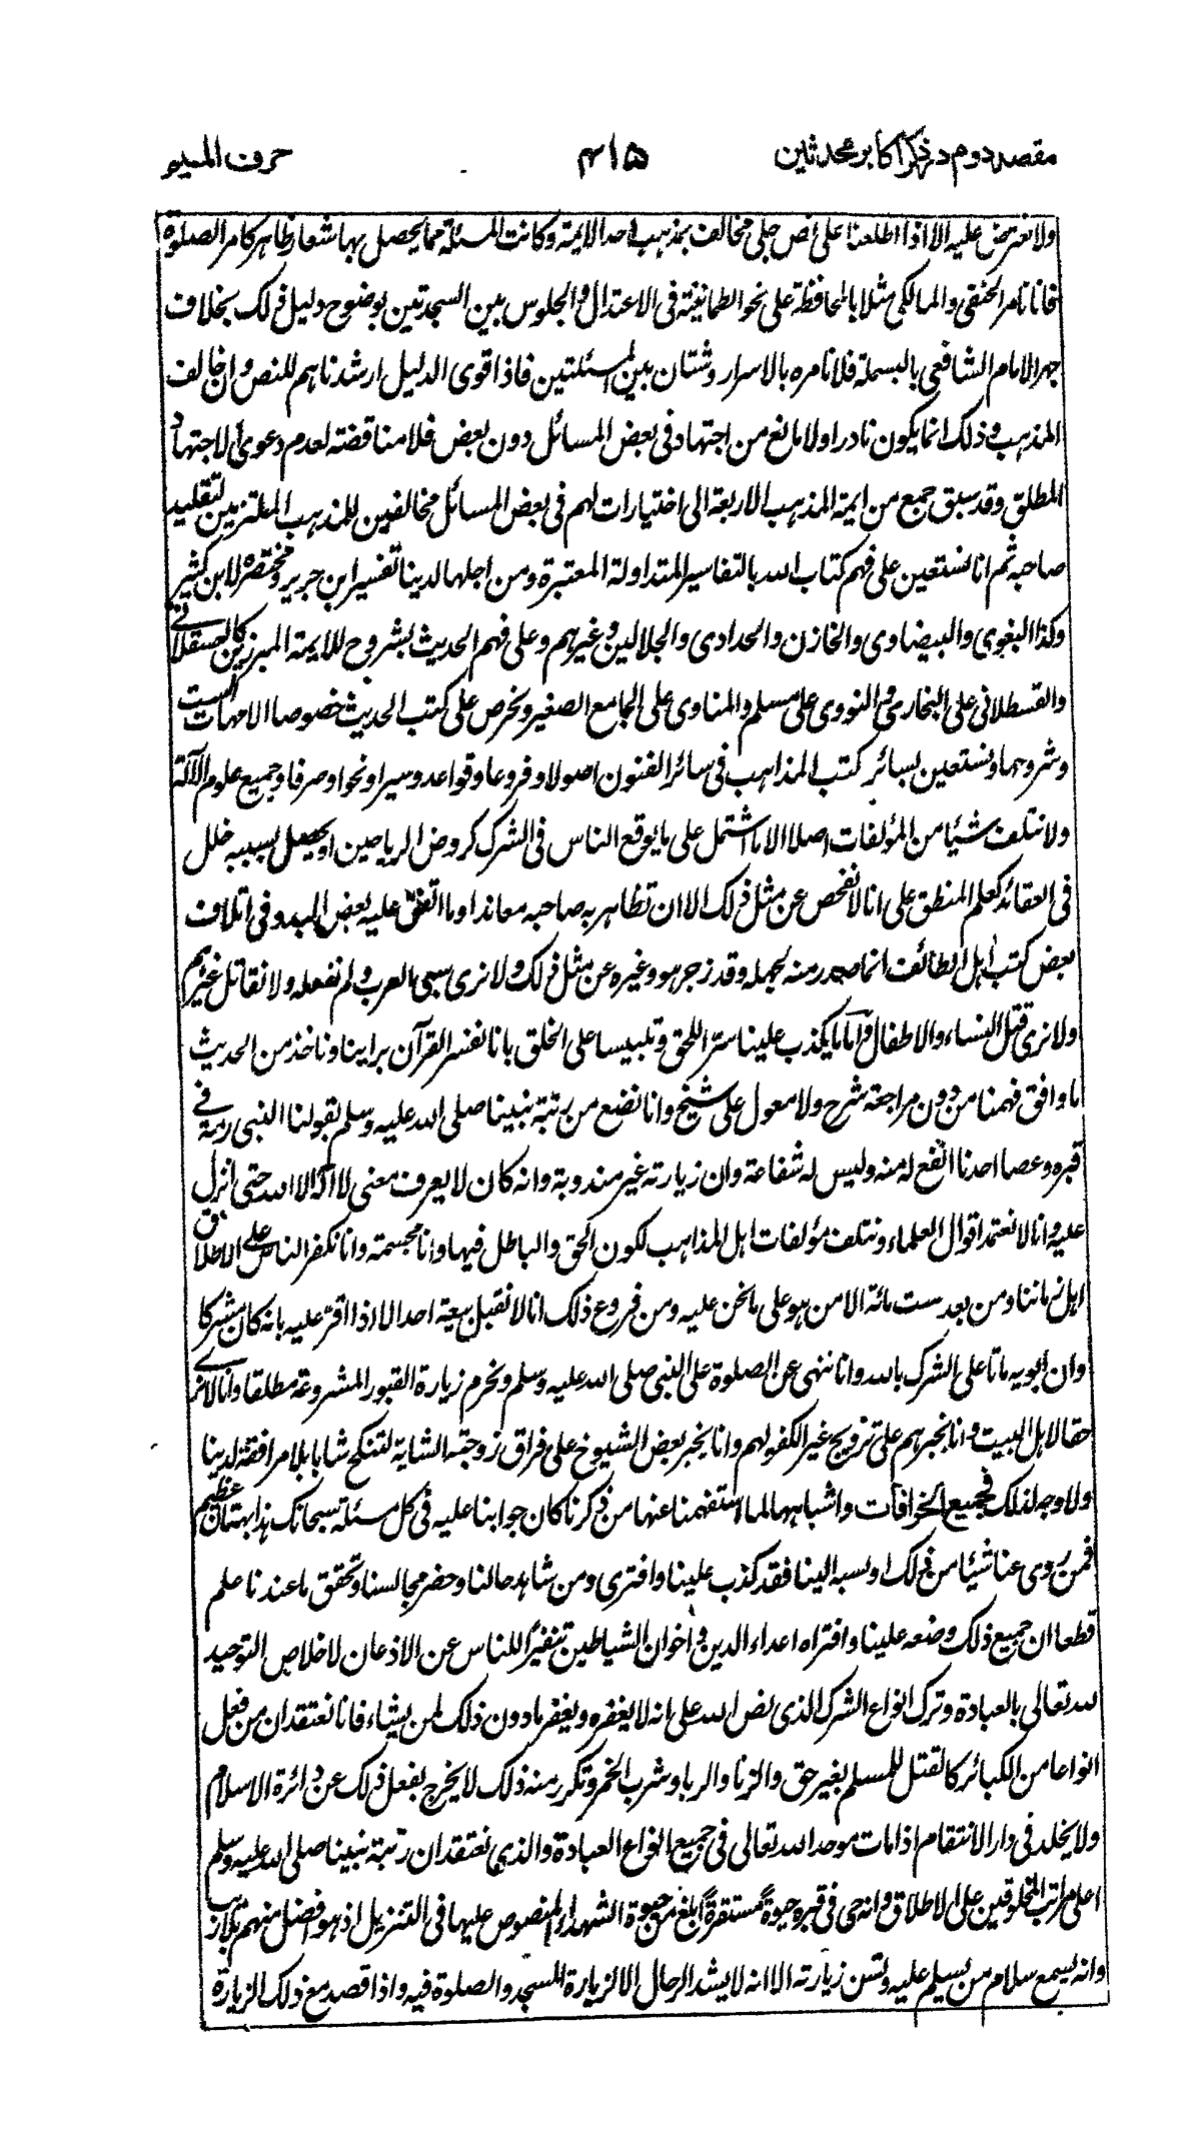 مقصد دوم در ذکر اکابر محدثین ۴۱۵ حرف المیم
ولا نعترض علیہ الا اذا اطلعنا علی نص جلی مخالف بمذہب احد الایمۃ وکانت المسئلۃ مما یحصل بہا شعار ظاہر کامر الصلوۃ
فانا نامر الحنفی والمالکی مثلا بالمحافظۃ علی نحو الطمانینۃ فی الاعتدال والجلوس بین السجدتین بوضوح دلیل ذلک بخلاف
جہر الامام الشافعی بالبسملۃ فلا نامرہ بالاسرار وشتان بین المسئلتین فاذا قوی الدلیل ارشدناہم للنص وان خالف
المذہب وذلک انما یکون نادرا ولا مانع من اجتہاد فی بعض المسائل دون بعض فلا مناقضتہ لعدم دعوی الاجتہاد
المطلق وقد سبق جمع من ایمۃ المذہب الاربعۃ الی اختیارات لہم فی بعض المسائل مخالفین للمذہب الملتزمین لتقلید
صاحبہ ثم انا نستعین علی فہم کتاب اللہ بالتفاسیر المتداولۃ المعتبرۃ ومن اجلہا لدینا تفسیر ابن جریر ومختصرہ لابن کثیر
وکذا البغوی والبیضاوی والخازن والحدادی والجلالین وغیرہم وعلی فہم الحدیث بشروح للایمۃ المبرزین کالعسقلانی
والقسطلانی علی البخاری والنووی علی مسلم والمناوی علی الجامع الصغیر ونحرص علی کتب الحدیث خصوصا الامہات الست
وشروحہا ونستعین بسائر کتب المذاہب فی سائر الفنون اصولا وفروعا وقواعد وسیرا ونحوا وصرفا وجمیع علوم الآلۃ
ولا نتلف شیئا من المؤلفات اصلا الا ما اشتمل علی ما یوقع الناس فی الشرک کروض الریاحین او یحصل بسببہ خلل
فی العقائد کعلم المنطق علی انا لا نفحص عن مثل ذلک الا ان تظاہر بہ صاحبہ معاندا وما اتفق علیہ بعض البدو فی اتلاف
بعض کتب اہل الطائف انما صدر منہ لجہلہ وقد زجر ہو وغیرہ عن مثل ذلک ولا نری سبی العرب ولم نفعلہ ولا نقاتل غیرہم
ولا نری قتل النساء والاطفال واما ما یکذب علینا سترا للحق وتلبیسا علی الخلق بانا نفسر القرآن براینا وناخذ من الحدیث
ما وافق فہمنا من دون مراجعۃ شرح ولا معول علی شیخ وانا نضع من رتبۃ نبینا صلی اللہ علیہ وسلم بقولنا النبی رمۃ فی
قبرہ وعصا احدنا انفع لہ منہ ولیس لہ شفاعۃ وان زیارتہ غیر مندوبۃ وانہ کان لا یعرف معنی لا الہ الا اللہ حتی انزل
علیہ وانا لا نعتمد اقوال العلماء ونتلف مؤلفات اہل المذاہب لکون الحق والباطل فیہا وانا مجسمۃ وانا نکفر الناس علی الاطلاق
اہل زماننا ومن بعد ست مائۃ الا من ہو علی ما نحن علیہ ومن فروع ذلک انا لا نقبل بیعۃ احد الا اذا اقر علیہ بانہ کان مشرکا
وان ابویہ ماتا علی الشرک باللہ وانا ننہی عن الصلوۃ علی النبی صلی اللہ علیہ وسلم ونحرم زیارۃ القبور المشروعۃ مطلقا وانا لا نری
حقا لاہل البیت وانا نجبرہم علی تزویج غیر الکفو لہم وانا نجبر بعض الشیوخ علی فراق زوجتہ الشابۃ لتنکح شابا بلا مرافقۃ لدینا
ولا وجہ لذلک فجمیع الخرافات واشباہہا لما استفہمنا عنہا من ذکرنا کان جوابنا علیہ فی کل مسئلۃ سبحانک ہذا بہتان عظیم
فمن روی عنا شیئا من ذلک او نسبہ الینا فقد کذب علینا وافتری ومن شاہد حالنا وحضر مجالسنا وتحقق ما عندنا علم
قطعا ان جمیع ذلک وضعہ علینا وافتراہ اعداء الدین واخوان الشیاطین تنفیرا للناس عن الاذعان لاخلاص التوحید
للہ تعالی بالعبادۃ وترک انواع الشرک الذی نص اللہ علی انہ لا یغفرہ ویغفر ما دون ذلک لمن یشاء فانا نعتقد ان من فعل
انواعا من الکبائر کالقتل للمسلم بغیر حق والزنا والربا وشرب الخمر وتکرر منہ ذلک لا یخرج بفعل ذلک عن دائرۃ الاسلام
ولا یخلد فی دار الانتقام اذا مات موحد اللہ تعالی فی جمیع انواع العبادۃ والذی نعتقد ان رتبۃ نبینا صلی اللہ علیہ وسلم
اعلی مراتب المخلوقین علی الاطلاق وانہ حی فی قبرہ حیوۃ مستقرۃ ابلغ من حیوۃ الشہداء المنصوص علیہا فی التنزیل اذ ہو افضل منہم بلا ریب
وانہ یسمع سلام من یسلم علیہ وتسن زیارتہ الا انہ لا یشد الرحال الا لزیارۃ المسجد والصلوۃ فیہ واذا قصد مع ذلک الزیارۃ